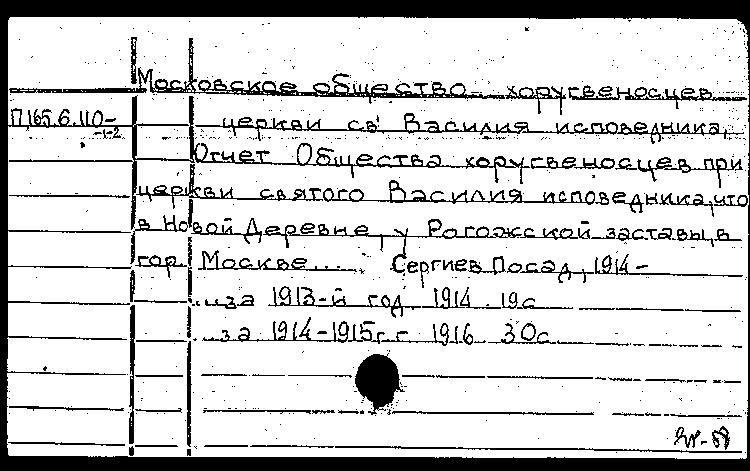 Московское общество хоругвеносцев
П165.6.110-
-1-2
церкви св. Василия исповедника,
Отчет Общества хоругвеносцев при
церкви святого Василия исповедника, что
в Новой Деревне, у Рогожской заставы, в
гор. Москве... Сергиев Посад, 1914-
...за 1913-й год. 1914. 19с
...за 1914-1915г.г. 1916. 30с.